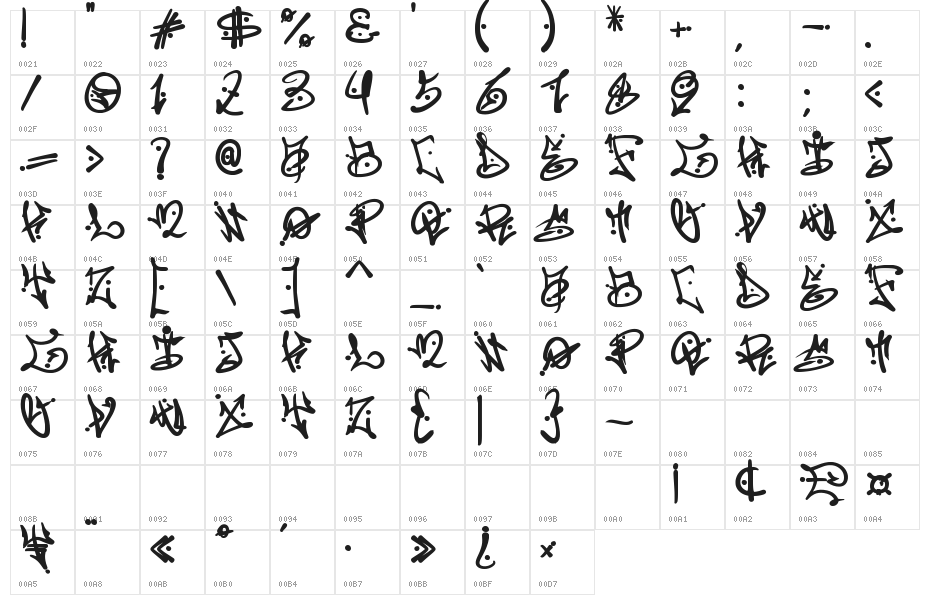 ! " # $ % & ' ( ) * + , - .
0021 0022 0023 0024 0025 0026 0027 0028 0029 002A 002B 002C 002D 002E
/ 0 1 2 3 4 5 6 7 8 9 : ; <
002F 0030 0031 0032 0033 0034 0035 0036 0037 0038 0039 003A 003B 003C
= > ? @ A B C D E F G H I J
003D 003E 003F 0040 0041 0042 0043 0044 0045 0046 0047 0048 0049 004A
K L M N O P Q R S T U V W X
004B 004C 004D 004E 004F 0050 0051 0052 0053 0054 0055 0056 0057 0058
Y Z [ \ ] ^ _ ` A B C D E F
0059 005A 005B 005C 005D 005E 005F 0060 0061 0062 0063 0064 0065 0066
G H I J K L M N O P Q R S T
0067 0068 0069 006A 006B 006C 006D 006E 006F 0070 0071 0072 0073 0074
U V W X Y Z { | } ~
0075 0076 0077 0078 0079 007A 007B 007C 007D 007E 0080 0082 0084 0085
¡ ¢ £ ¤
008B 0091 0092 0093 0094 0095 0096 0097 009B 00A0 00A1 00A2 00A3 00A4
¥ ¨ « ° ´ · » ¿ ×
00A5 00A8 00AB 00B0 00B4 00B7 00BB 00BF 00D7